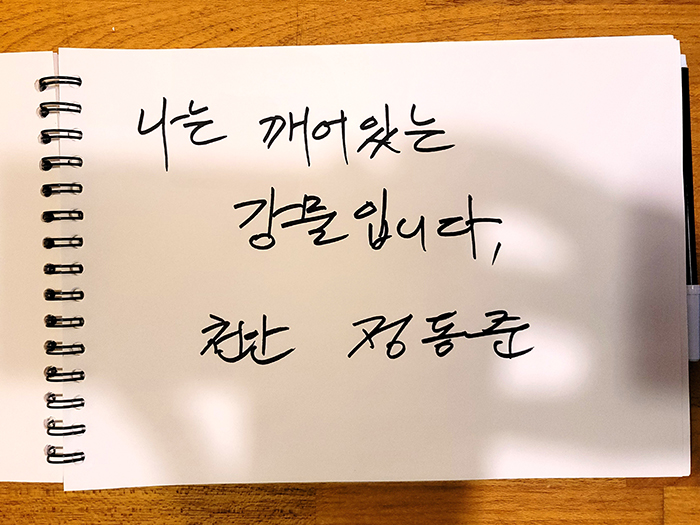 나는 깨어있는
강물입니다,
천단 정동준